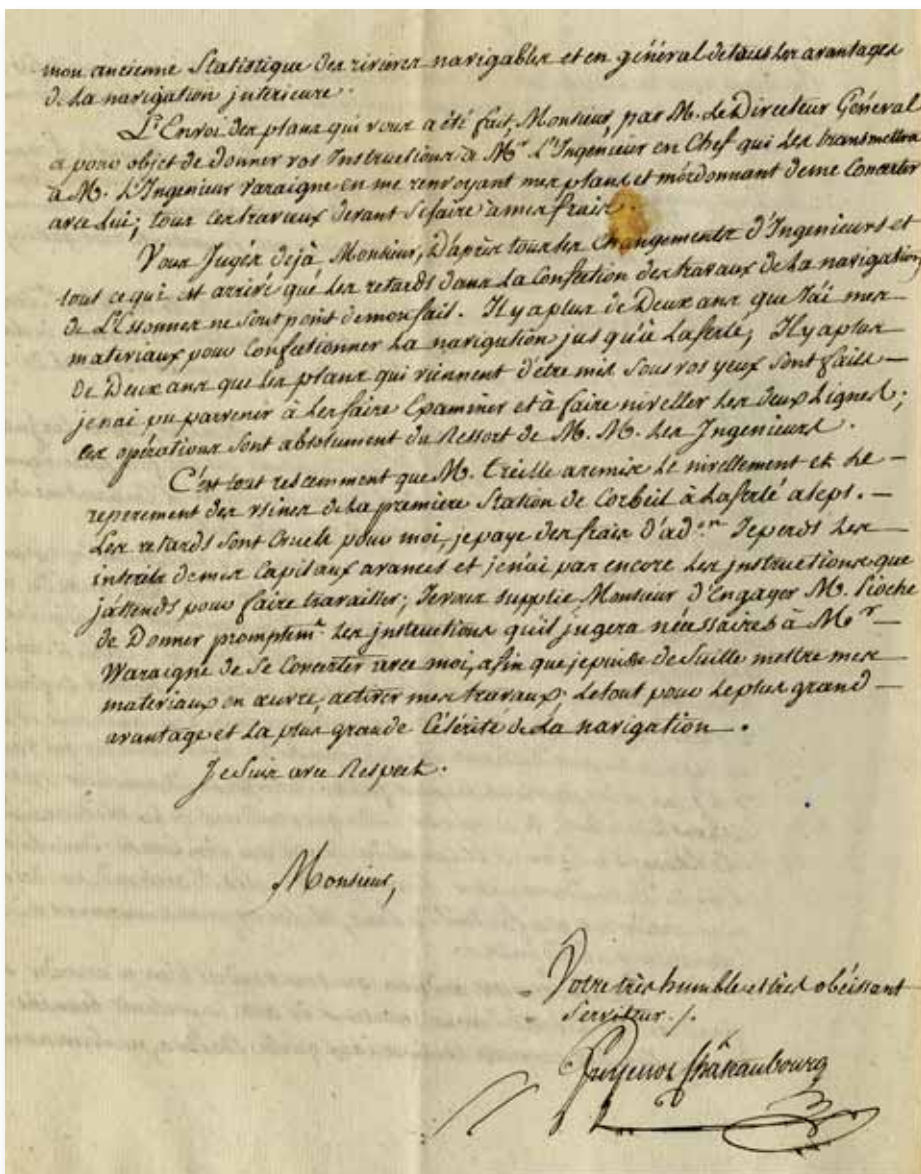 mon ancienne Statistique des rivieres navigables et en général de tous les avantages
de la navigation jnterieure.
L'Envoi des plans qui vous a été fait, Monsieur, par M. Le Directeur Général
a pour objet de donner vos Instructions à Mr. L'Ingenieur en Chef qui les transmettra
à M. L'Ingenieur Varaigne en me renvoyant mes plans et m'ordonnant de me Concerter
avec Lui; tous ces travaux devant se faire à mes frais.
Vous Jugés dejà Monsieur, D'après tous les Changements d'Ingenieurs et
tout ce qui est arrivé que les retards dans La Confection des travaux de La navigation,
de L'Essonne ne sont point de mon fait. Il y a plus de Deux ans que J'ai mes
materiaux pour Confectionner La navigation jusqu'à Laferté; Il y a plus
de Deux ans que les plans qui viennent d'être mis sous vos yeux sont faits —
je n'ai pu parvenir à les faire Examiner et à faire niveller les deux Lignes;
ces opérations sont absolument du Ressort de M. M. les Ingenieurs.
C'est tout rescemment que M. Treille a remis Le nivellement et Le —
reperement des usines de La première Station de Corbeil à Laferté aleps. —
Les retards sont Cruels pour moi, je paye des frais d'ad.on Je perds Les
intérêts de mes Capitaux avancés et je n'ai pas encore Les jnstructions que
j'attends pour faire travailler; Je vous supplie Monsieur d'Engager M. Pioche
de Donner promptemt. Les jnstructions qu'il jugera nécessaires à Mr —
Waraigne de se Concerter avec moi, afin que je puisse de Suitte mettre mes
materiaux en œuvre, activer mes travaux; Le tout pour Le plus grand —
avantage et La plus grande Célérité de La navigation.
Je suis avec Respect.
Monsieur,
Votre très humble et très obéissant
Serviteur ./.
Chateaubourg